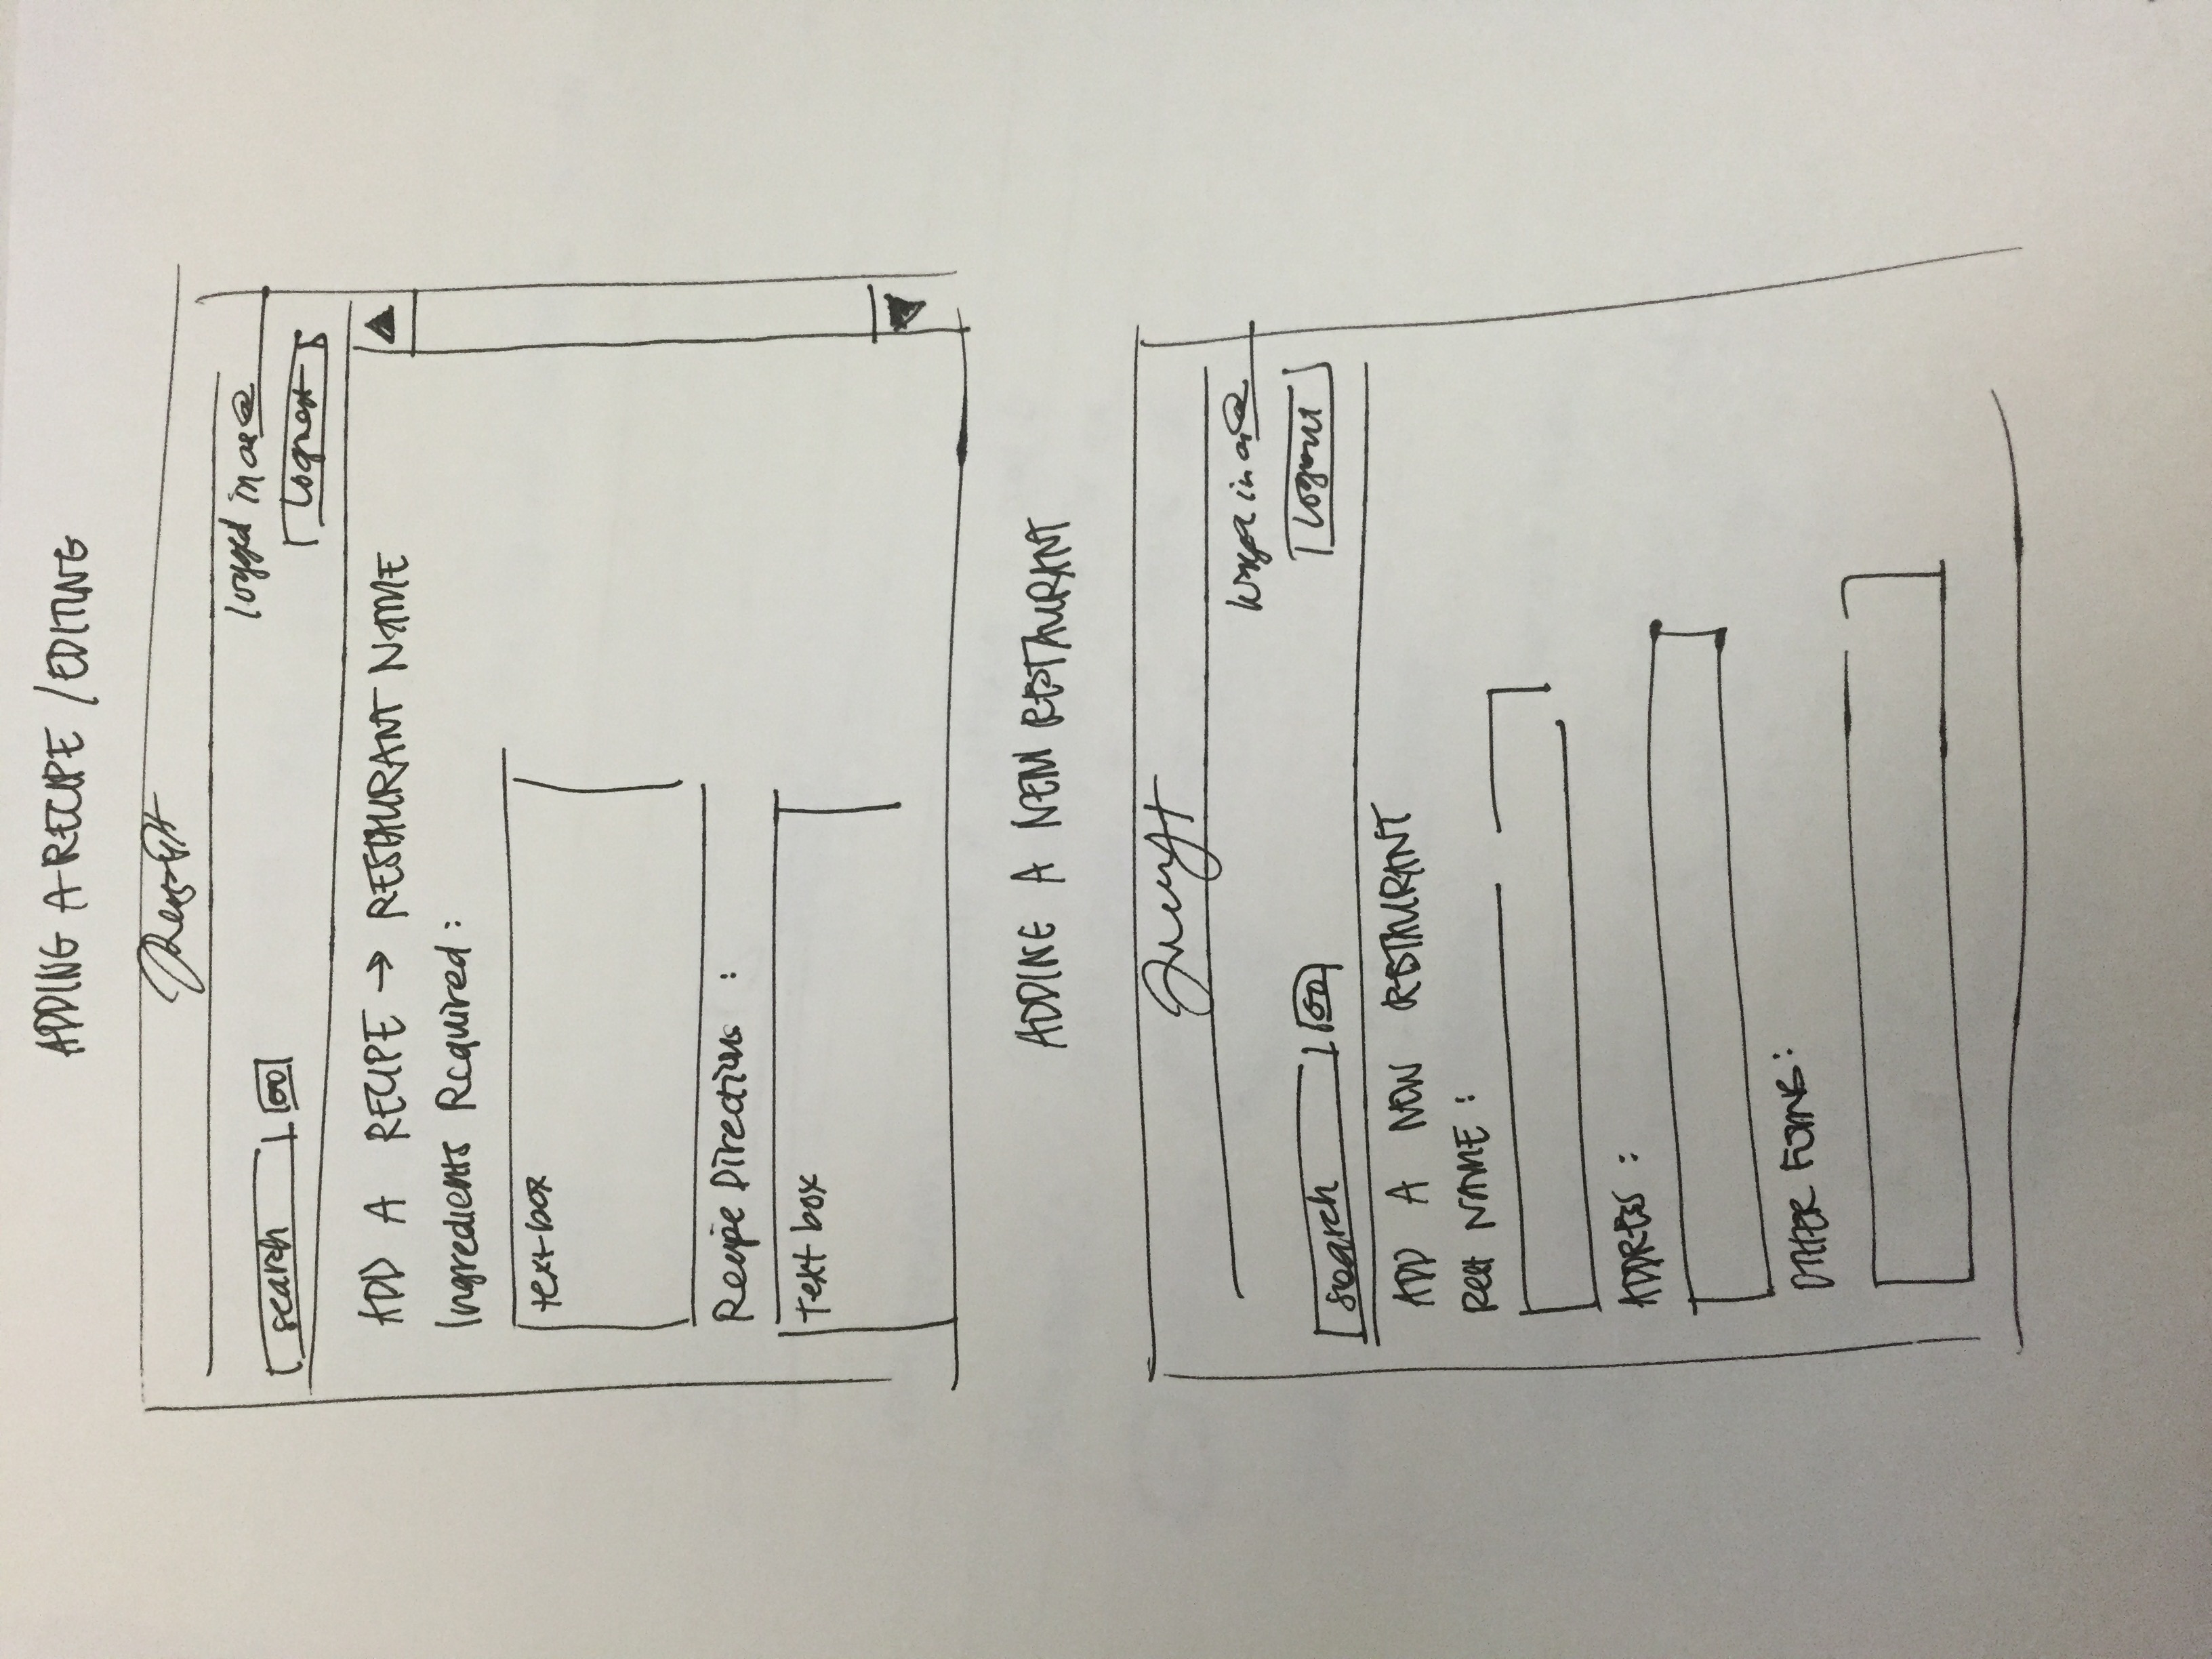 ADDING A RECIPE / EDITING
logged in as @
search GO
Logout
ADD A RECIPE → RESTAURANT NAME
Ingredients Required :
text box
Recipe Directions :
Text box
ADDING A NEW RESTAURANT
logged in as @
search GO
Logout
ADD A NEW RESTAURANT
Rest NAME :
ADDRESS :
OTHER FORMS :